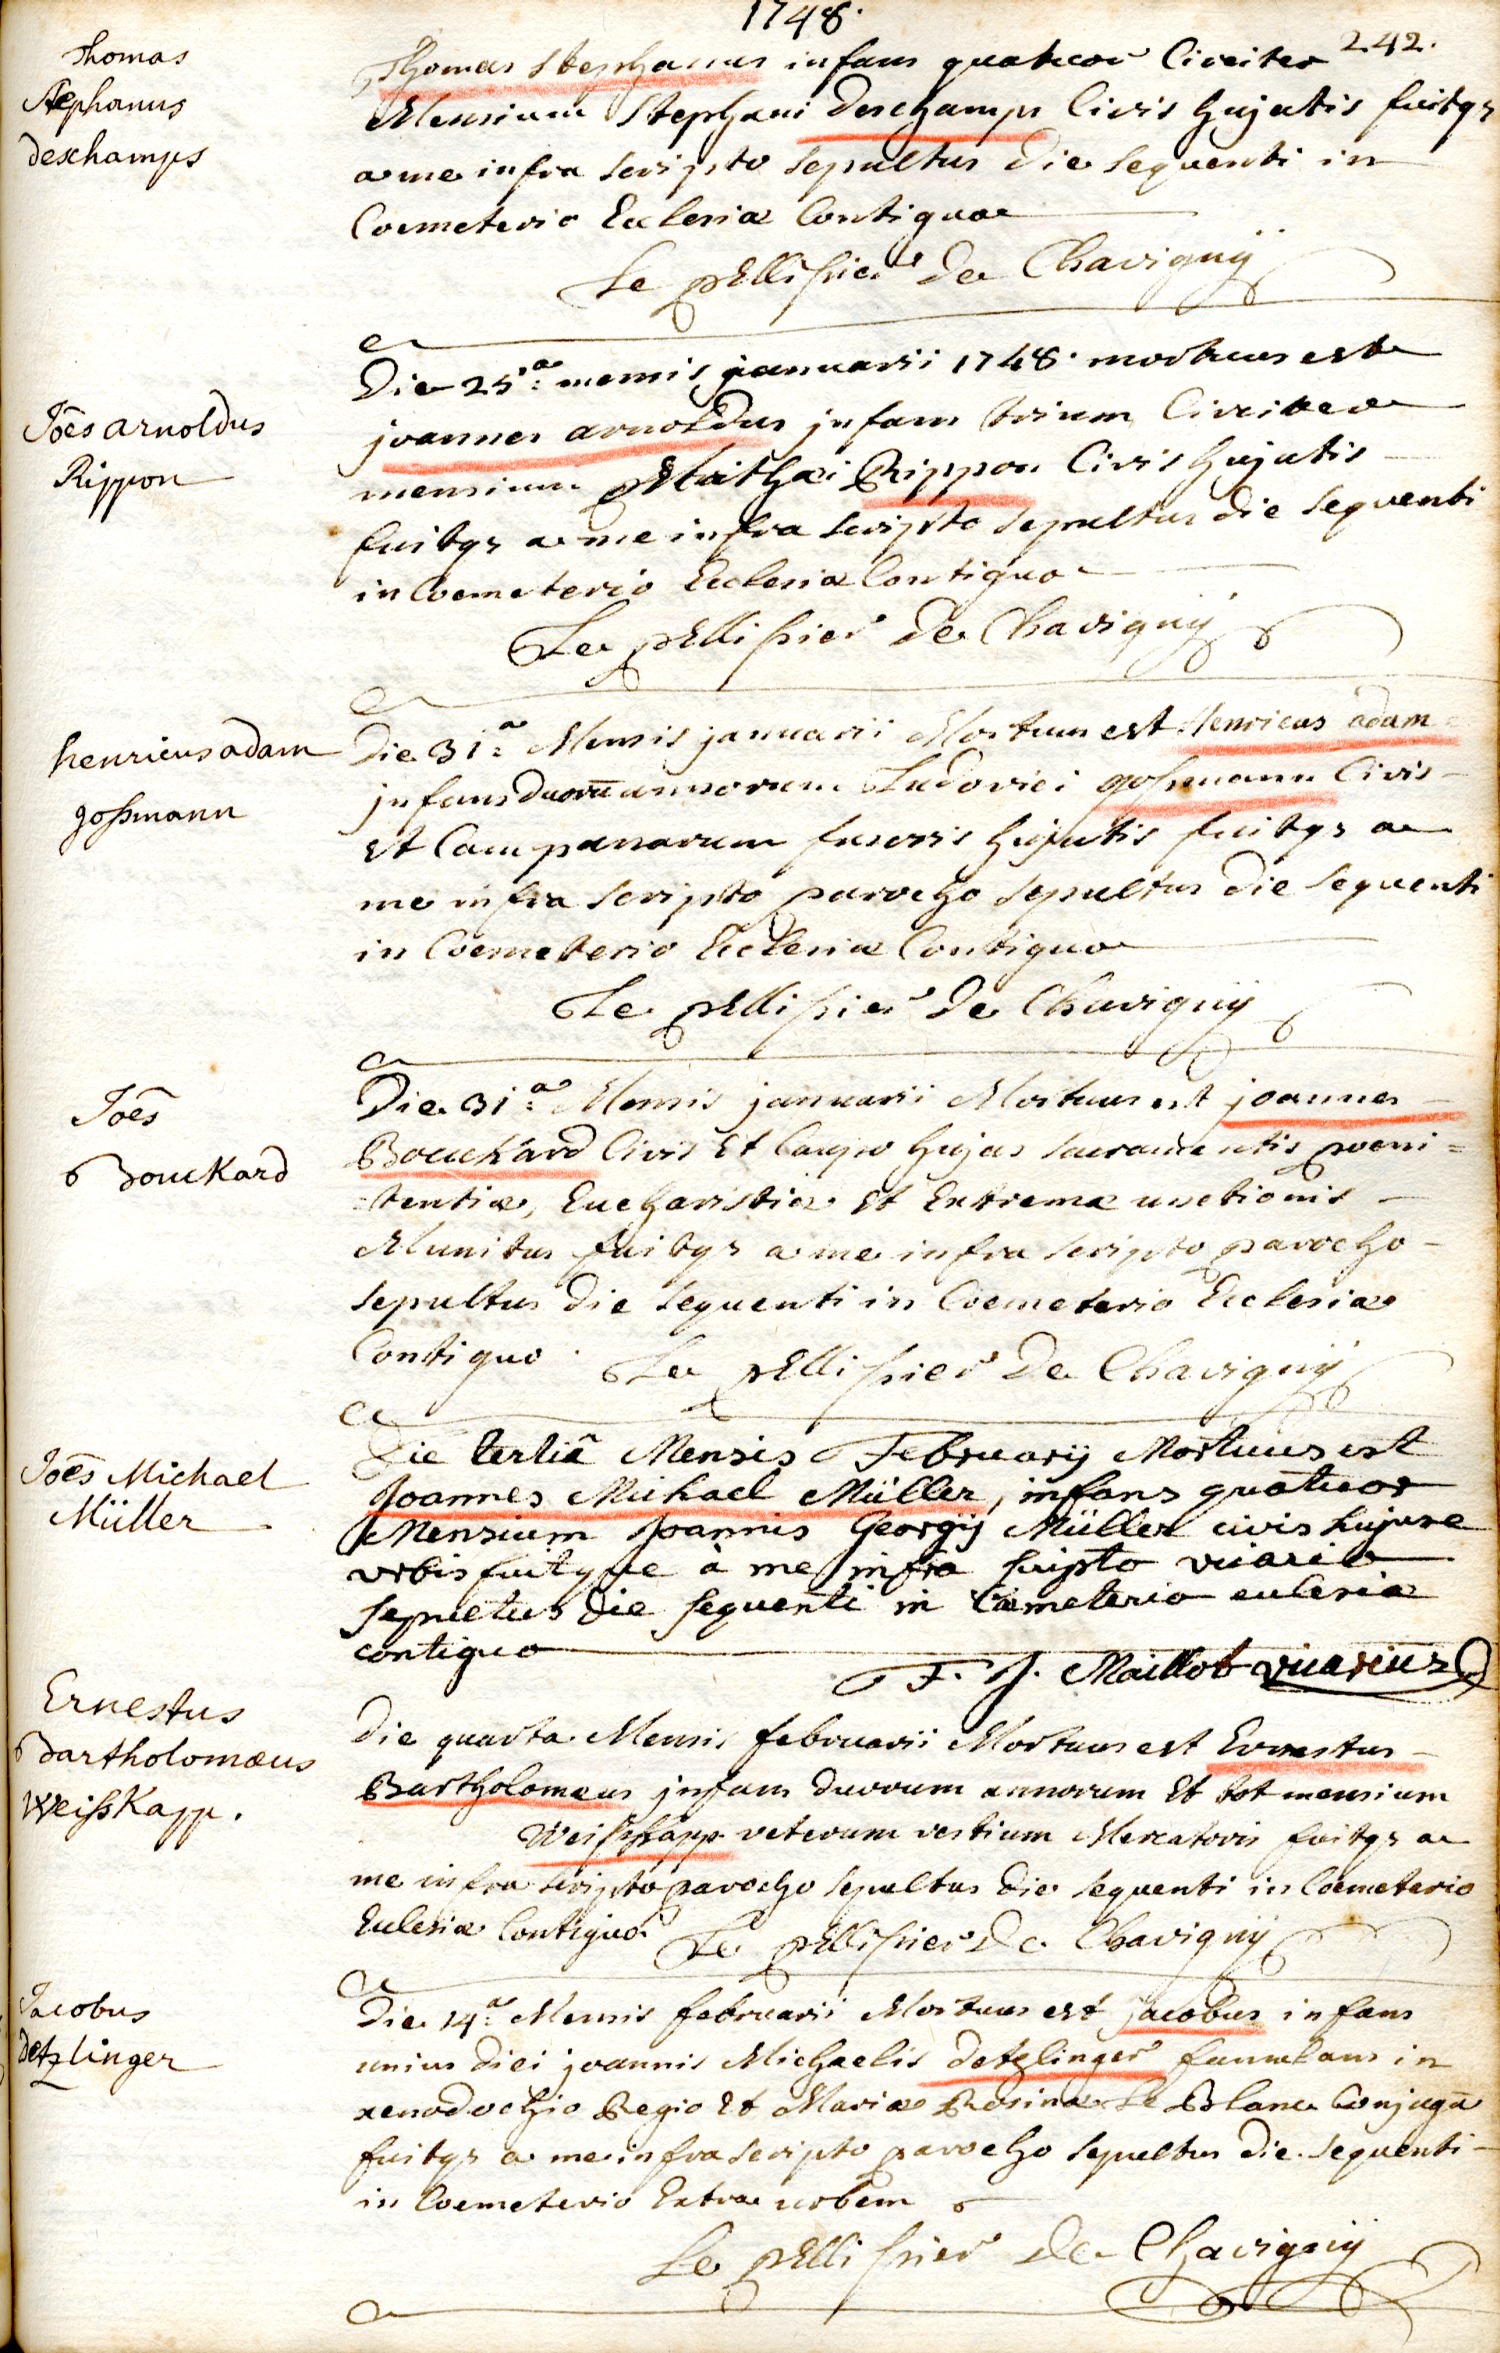 1748.
242.
Thomas
Stephanus
deschamps
Thomas Stephanus infans quatuor Circiter
Mensium Stephani deschamps Civis hujatis fuitqz
a me infra scripto sepultus die sequenti in
Coemeterio Ecclesiæ Contiguo
Le pellissier de Chavignÿ
Joēs arnoldus
Rippon
Die 25.a mensis januarii 1748. mortuus est
joannes arnoldus jnfans trium Circiter
mensium Mathæi Rippon Civis hujatis
fuitqz a me infra scripto sepultus die sequenti
in Coemeterio Ecclesiæ Contiguo
Le pellissier de Chavignÿ
henricus adam
goßmann
Die 31.a Mensis januarii Mortuus est henricus adam
jnfans duorū annorum Ludovici goßmann Civis
et Campanarum fusoris hujatis fuitqz a
me infra scripto parocho sepultus die sequenti
in Coemeterio Ecclesiæ Contiguo
Le pellissier de Chavignÿ
Joēs
Bouckard
Die 31.a Mensis januarii Mortuus est joannes
Bouckard Civis et Caupo hujas sacramentis poeni=
=tentiæ, Eucharistiæ et Extremæ unctionis
Munitus fuitqz a me infra scripto parocho
sepultus die sequenti in Coemeterio Ecclesiæ
Contiguo.
Le pellissier de Chavignÿ
Joēs Michael
Müller
Die tertiâ Mensis Februarij Mortuus est
Joannes Michael Müller, infans quatuor
Mensium Joannis Georgij Müller civis hujusce
urbis fuitque à me infra scripto vicario
sepultus die sequenti in Cæmeterio ecclesiæ
contiguo
F. J. Maillot vicarius
Ernestus
Bartholomæus
Weißkapp.
Die quarta Mensis februarii Mortuus est Ernestus
Bartholomæus jnfans duorum annorum et tot mensium
Weißkapp veterum vestium Mercatoris fuitqz a
me infra scripto parocho sepultus die sequenti in Coemeterio
Ecclesiæ Contiguo.
Le pellissier de Chavignÿ
Jacobus
detzlinger
Die 14.a Mensis februarii Mortuus est jacobus infans
unius diei joannis Michaelis detzlinger famulans in
xenodochio Regio et Mariæ Rosinæ Le Blanc Conjugū
fuitqz a me infra scripto parocho sepultus die sequenti
in Coemeterio Extra urbem
Le pellissier de Chavignÿ